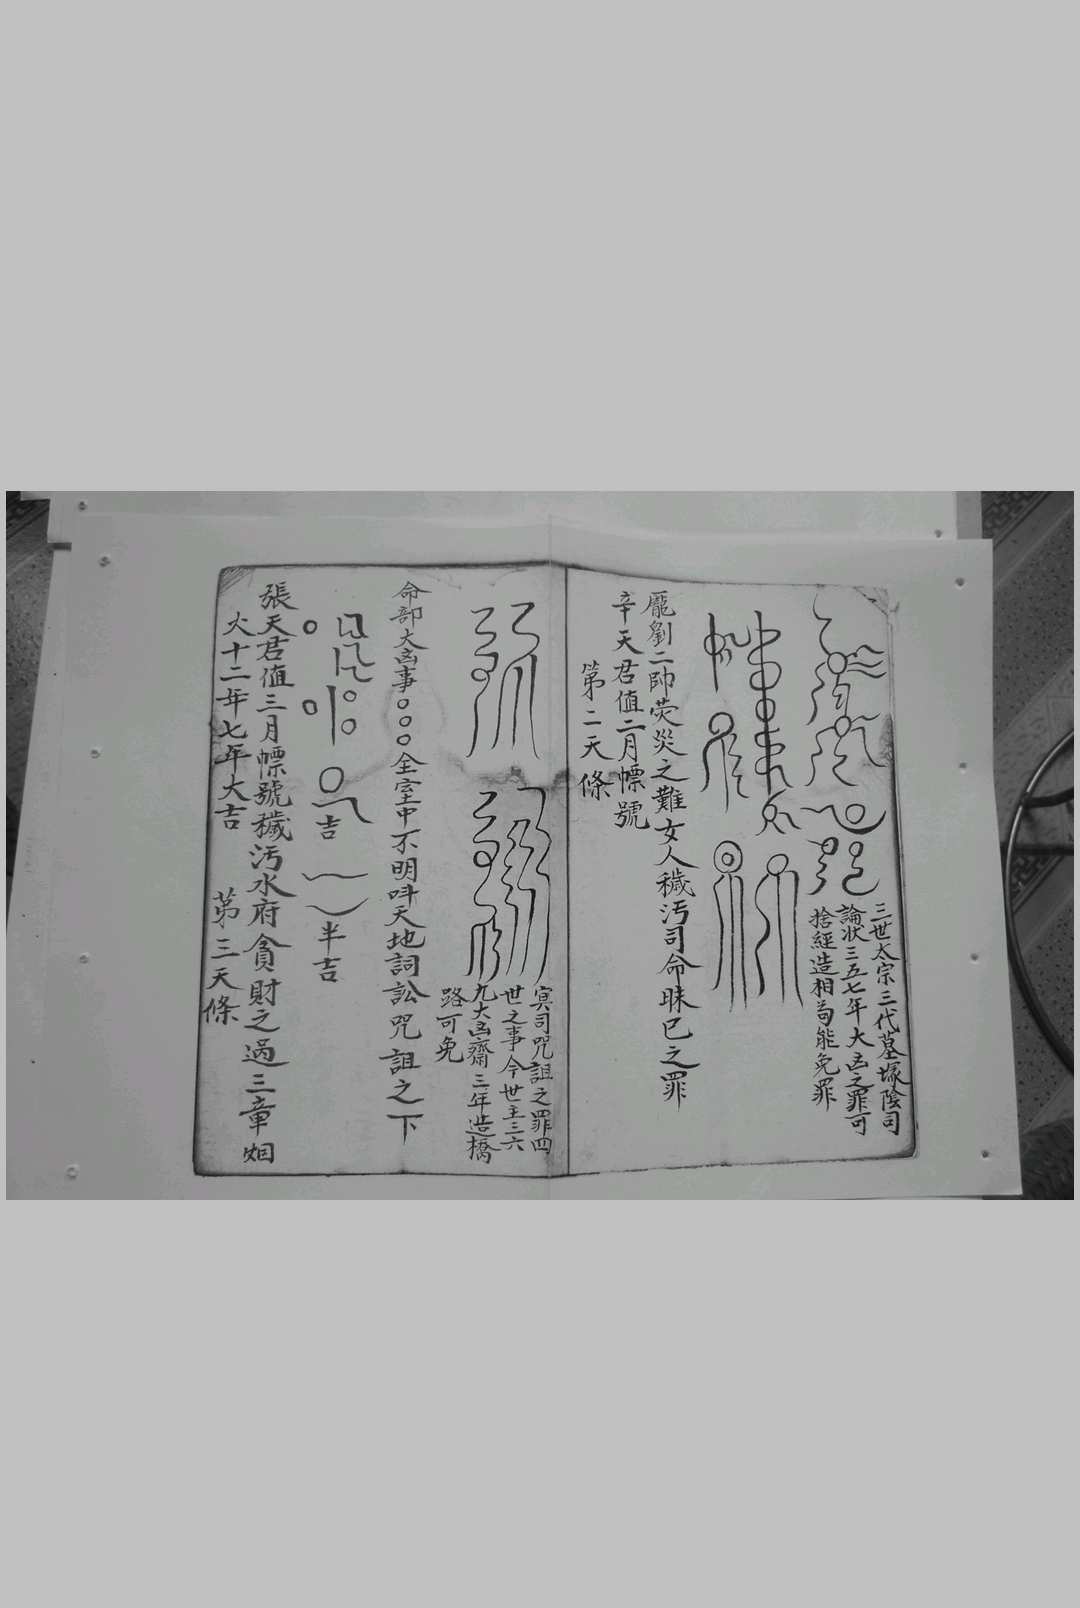 三世太宗三代墓塚陰司
論狀三五七年大凶之罪可
捨經造相萄能免罪
龐劉二帥荧災之難女人穢污司命昧巳之罪
辛天君值二月幖號
第二天條
冥司咒詛之罪四
世之事今世主三六
九大凶齋三年造橋
路可免
命部大凶事○○○全室中不明呌天地詞訟咒詛之下
吉
半吉
張天君值三月幖號穢污水府貪財之過三章
火十二年七年大吉
第三天條